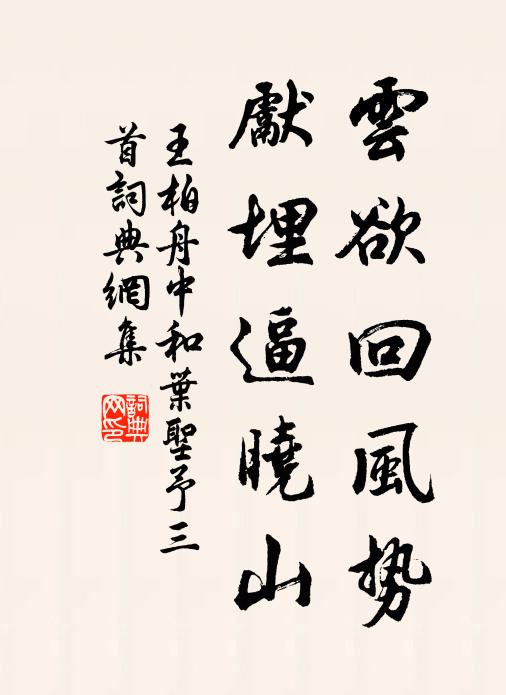 雲欲回風勢
獻埋逼曉山
王柏舟中和葉聖予三
首詞典網集
詞典網印